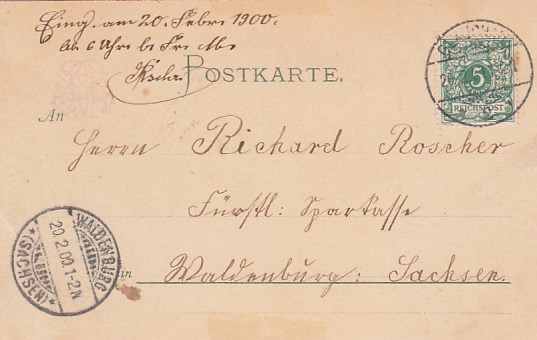 Eing. am 20. Febr. 1900.
6 Uhr
POSTKARTE.
5
REICHSPOST
An
Herrn Richard Roscher
Fürstl: Sparkasse
in
Waldenburg: Sachsen.
WALDENBURG
20.2.00.1-2N
*(SACHSEN)*